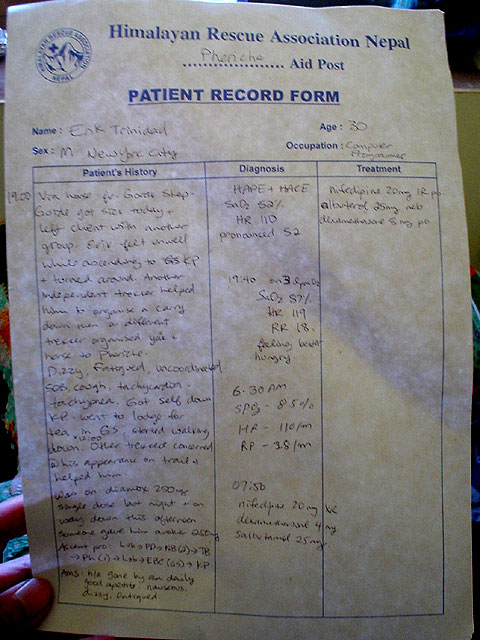 HIMALAYAN RESCUE ASSOCIATION
NEPAL
Himalayan Rescue Association Nepal
Pheriche Aid Post
PATIENT RECORD FORM
Name: Erik Trinidad Age: 30
Sex: M New York City Occupation: Computer
Programmer
Patient's History Diagnosis Treatment
19:00 Via horse fr. Gorak Shep.
Guide got sick today +
left client with another
group. Erik felt unwell
whilst ascending to KP
+ turned around. Another
independent trekker helped
him to organise a carry
down then a different
trekker organised yak +
horse to Pheriche.
Dizzy, Fatigued, uncoordinated
SOB, cough, tachycardia
tachypnea. Got self down
KP. went to lodge for
tea in GS, started walking
12:00
down. Other trekkers concerned
his appearance on trail +
helped him
Was on diamox 250mg
single dose last night + on
way down this afternoon
someone gave him another 250mg
Ascent pro: Luk → PD → NB(2) → TB
→ Ph(1) → Lob → EBC(GS) → KP
AMS: h/a gone by am daily
good apetite. nauseous,
dizzy, fatigued.
HAPE + HACE
SaO2 52%
HR 110
pronounced S2
19:40 on 3
SaO2 87%
HR 119
RR 18.
feeling better
hungry
6.30 AM
SPO2 - 85%
HR - 110/m
RP - 38/m
07:50
nifedipine 20mg
dexamethasone 4mg
Salbutamol 25mg
nifedipine 20mg 1R po
albuterol 25mg neb
dexamethasone 8mg po